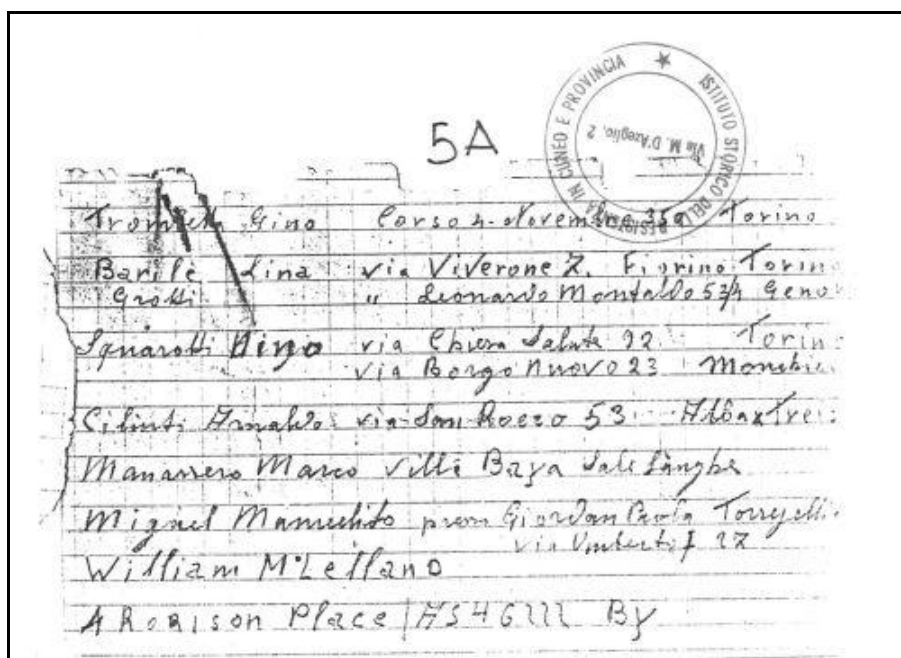 5A
ISTITUTO STORICO DELLA RESISTENZA IN CUNEO E PROVINCIA
Via M. D'Azeglio, 2
Gino Corso 4 Novembre 350 Torino
Barile Lina via Viverone 7. Fiorino Torin
Grotti " Leonardo Montaldo 53/4 Geno
Squarotti Nino via Chiesa Salute 92 Torin
via Borgo Nuovo 23 Monchie
Arnaldo via San Rocco 53 Alba
Manassero Marco Ville Baza Sale Langhe
Miguel Manuelito Giordan Torre
via Umberto I 27
William McLellano
4 Rorison Place